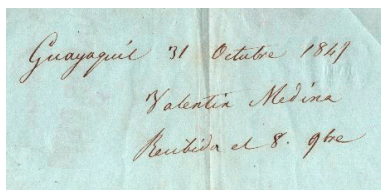 Guayaquil 31 Octubre 1849
Valentin Medina
Recibida el 8. 9bre